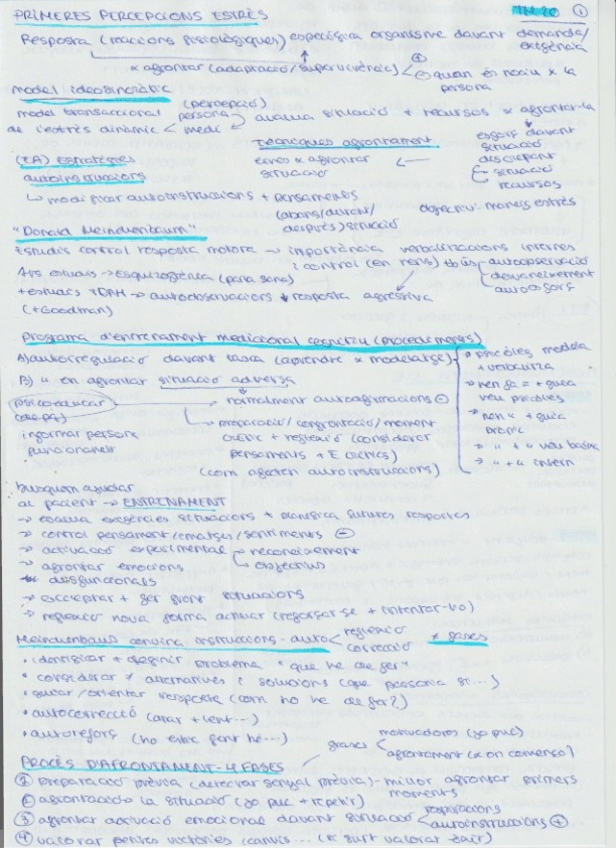 PRIMERES PERCEPCIONS ESTRÈS TM 20 ①
Resposta (reaccions fisiològiques) específica organisme davant demanda/
exigència
x afrontar (adaptació/supervivència) + - quan és nociu x la
persona
model ideosincràtic (percepció)
model transaccional persona avalua situació + recursos x afrontar-la
de l'estrès dinàmic < medi
Tècniques afrontament esforç davant
situació
discrepant
situació
recursos
eines x afrontar
situació
(EA) Estratègies
autoinstruccions
↳ modificar autoinstruccions + pensaments
(abans/durant/
després) situació
objectiu: maneig estrès
"Donald Meindenbaum"
Estudis control resposta motora → importància verbalitzacions internes
i control (en nens) autoobservació
Altres estudis → Esquizofrènia (parla sana) autoreforç
+ estudis TDAH → autoobservacions ↓ resposta agressiva
(+ Goodman)
Programa d'entrenament mediacional cognitiu (procediments)
A) autorregulació davant tasca (aprendre x modelatge)
→ psicòleg modela
+ verbalitza
→ nen fa = + guia
veu psicòleg
→ nen " + guia
pròpia
→ " + " veu baixa
→ " + " intern
B) " en afrontar situació adversa
normalment autoafirmacions ⊖
psicoeducar
informar persona
funcionament
→ preparació/confrontació/moment
crític + reflexió (considerar
pensaments + E crítics)
(com afecten autoinstruccions)
busquem ajudar
al pacient → ENTRENAMENT
→ avalua exigències situacions + planifica futures respostes
→ control pensament/imatges/sentiments ⊖
→ activació experimental reconeixement
objectius
→ afrontar emocions
disfuncionals
→ acceptar + fer front situacions
→ reflexió nova forma actuar (reforçar-se + intentar-ho)
Meindenbaum canvia instruccions-auto reflexió
correcció x fases
• identificar + definir problema "què he de fer"
• considerar ≠ alternatives i solucions (què passaria si...)
• guiar/orientar resposta (com ho he de fer?)
• autocorrecció (anar + lent...)
• autoreforç (ho estic fent bé...)
frases motivadores (jo puc)
afrontament (x on començo)
PROCÉS D'AFRONTAMENT - 4 FASES
① preparació prèvia (detectar senyal prèvia) - millor afrontar primers
moments
② afrontació la situació (jo puc + repetir)
③ afrontar activació emocional davant situació respiracions
autoinstruccions ⊕
④ valorar petites victòries i canvis...